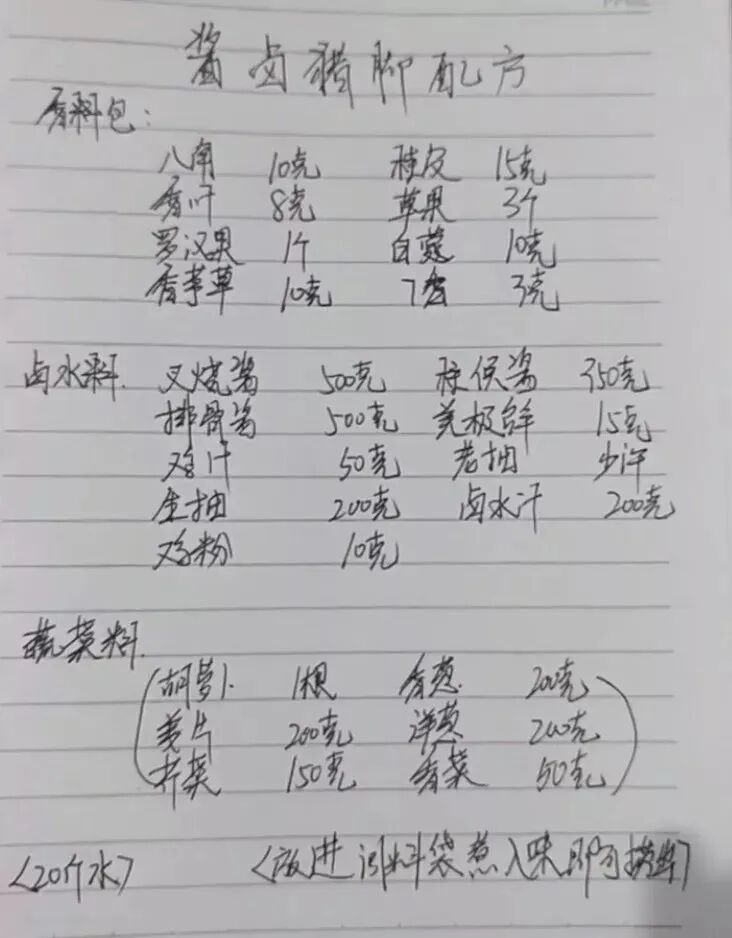 酱卤猪脚配方
香料包：
八角 10克 桂皮 15克
香叶 8克 草果 3个
罗汉果 1个 白蔻 10克
香茅草 10克 丁香 3克
卤水料. 叉烧酱 500克 柱侯酱 350克
排骨酱 500克 美极鲜 15克
鸡汁 50克 老抽 少许
生抽 200克 卤水汁 200克
鸡粉 10克
蔬菜料.
(胡萝卜 1根 香葱 200克
姜片 200克 洋葱 200克
芹菜 150克 香菜 50克)
<20斤水> <放进调料袋煮入味即可捞出>